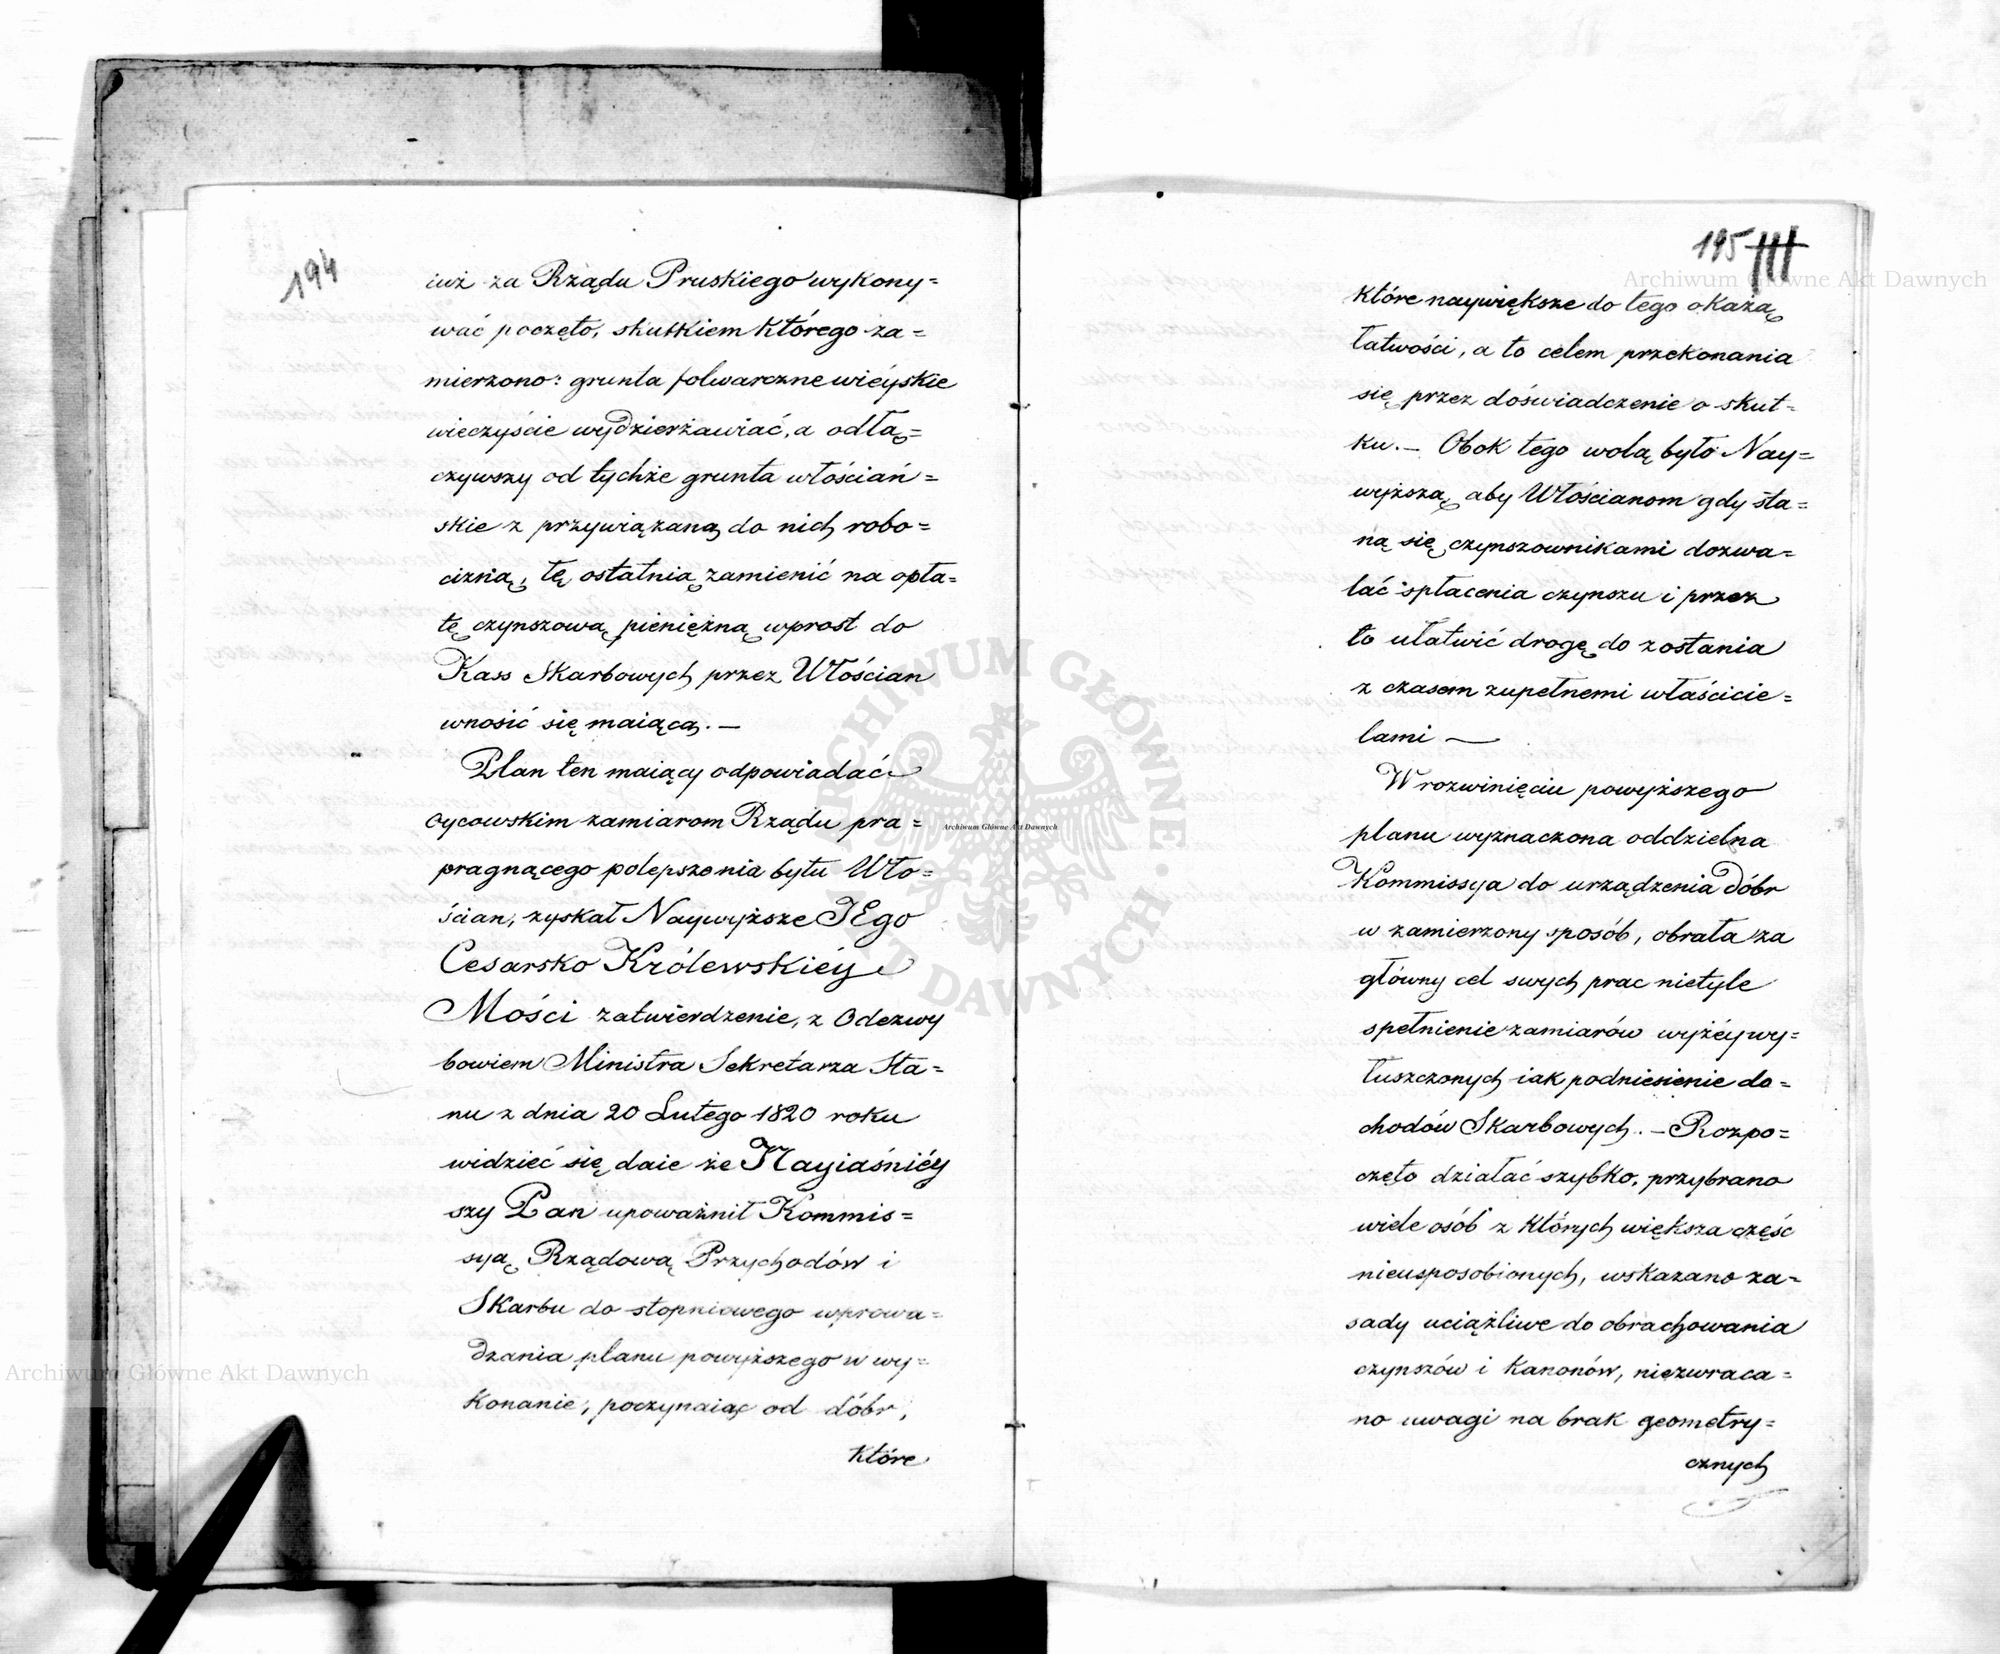 194
iuż za Rządu Pruskiego wykony=
wać poczęto, skutkiem którego za=
mierzono: grunta folwarczne wieyskie
wieczyście wydzierżawiać, a odłą=
czywszy od tychże grunta włościań=
skie z przywiązaną do nich robo=
cizną, tę ostatnią zamienić na opła=
tę czynszową pieniężną wprost do
Kass Skarbowych przez Włościan
wnosić się maiącą. —
Plan ten maiący odpowiadać
oycowskim zamiarom Rządu pra=
pragnącego polepszenia bytu Wło=
ścian, zyskał Naywyższe JEgo
Cesarsko Królewskiéy
Mości zatwierdzenie, z Odezwy
bowiem Ministra Sekretarza Sta=
nu z dnia 20 Lutego 1820 roku
widzieć się daie że Nayiaśniéy
szy Pan upoważnił Kommis=
syą Rządową Przychodów i
Skarbu do stopniowego wprowa=
dzania planu powyższego w wy=
konanie, poczynaiąc od dóbr,
które
195
które naywiększe do tego okażą
łatwości, a to celem przekonania
się przez doświadczenie o skut=
ku. — Obok tego wolą było Nay=
wyższą, aby Włościanom gdy sta=
ną się czynszownikami dozwa=
lać spłacenia czynszu i przez
to ułatwić drogę do zostania
z czasem zupełnemi właścicie=
lami —
W rozwinięciu powyższego
planu wyznaczona oddzielna
Kommissya do urządzenia dóbr
w zamierzony sposób, obrała za
główny cel swych prac nietyle
spełnienie zamiarów wyżéy wy=
łuszczonych iak podniesienie do=
chodów Skarbowych. — Rozpo=
częto działać szybko, przybrano
wiele osób z których większa częśc
nieusposobionych, wskazano za=
sady uciążliwe do obrachowania
czynszów i Kanonów, niezwraca=
no uwagi na brak geometry=
cznych
Archiwum Główne Akt Dawnych
Archiwum Główne Akt Dawnych
Archiwum Główne Akt Dawnych
ARCHIWUM GŁÓWNE AKT DAWNYCH